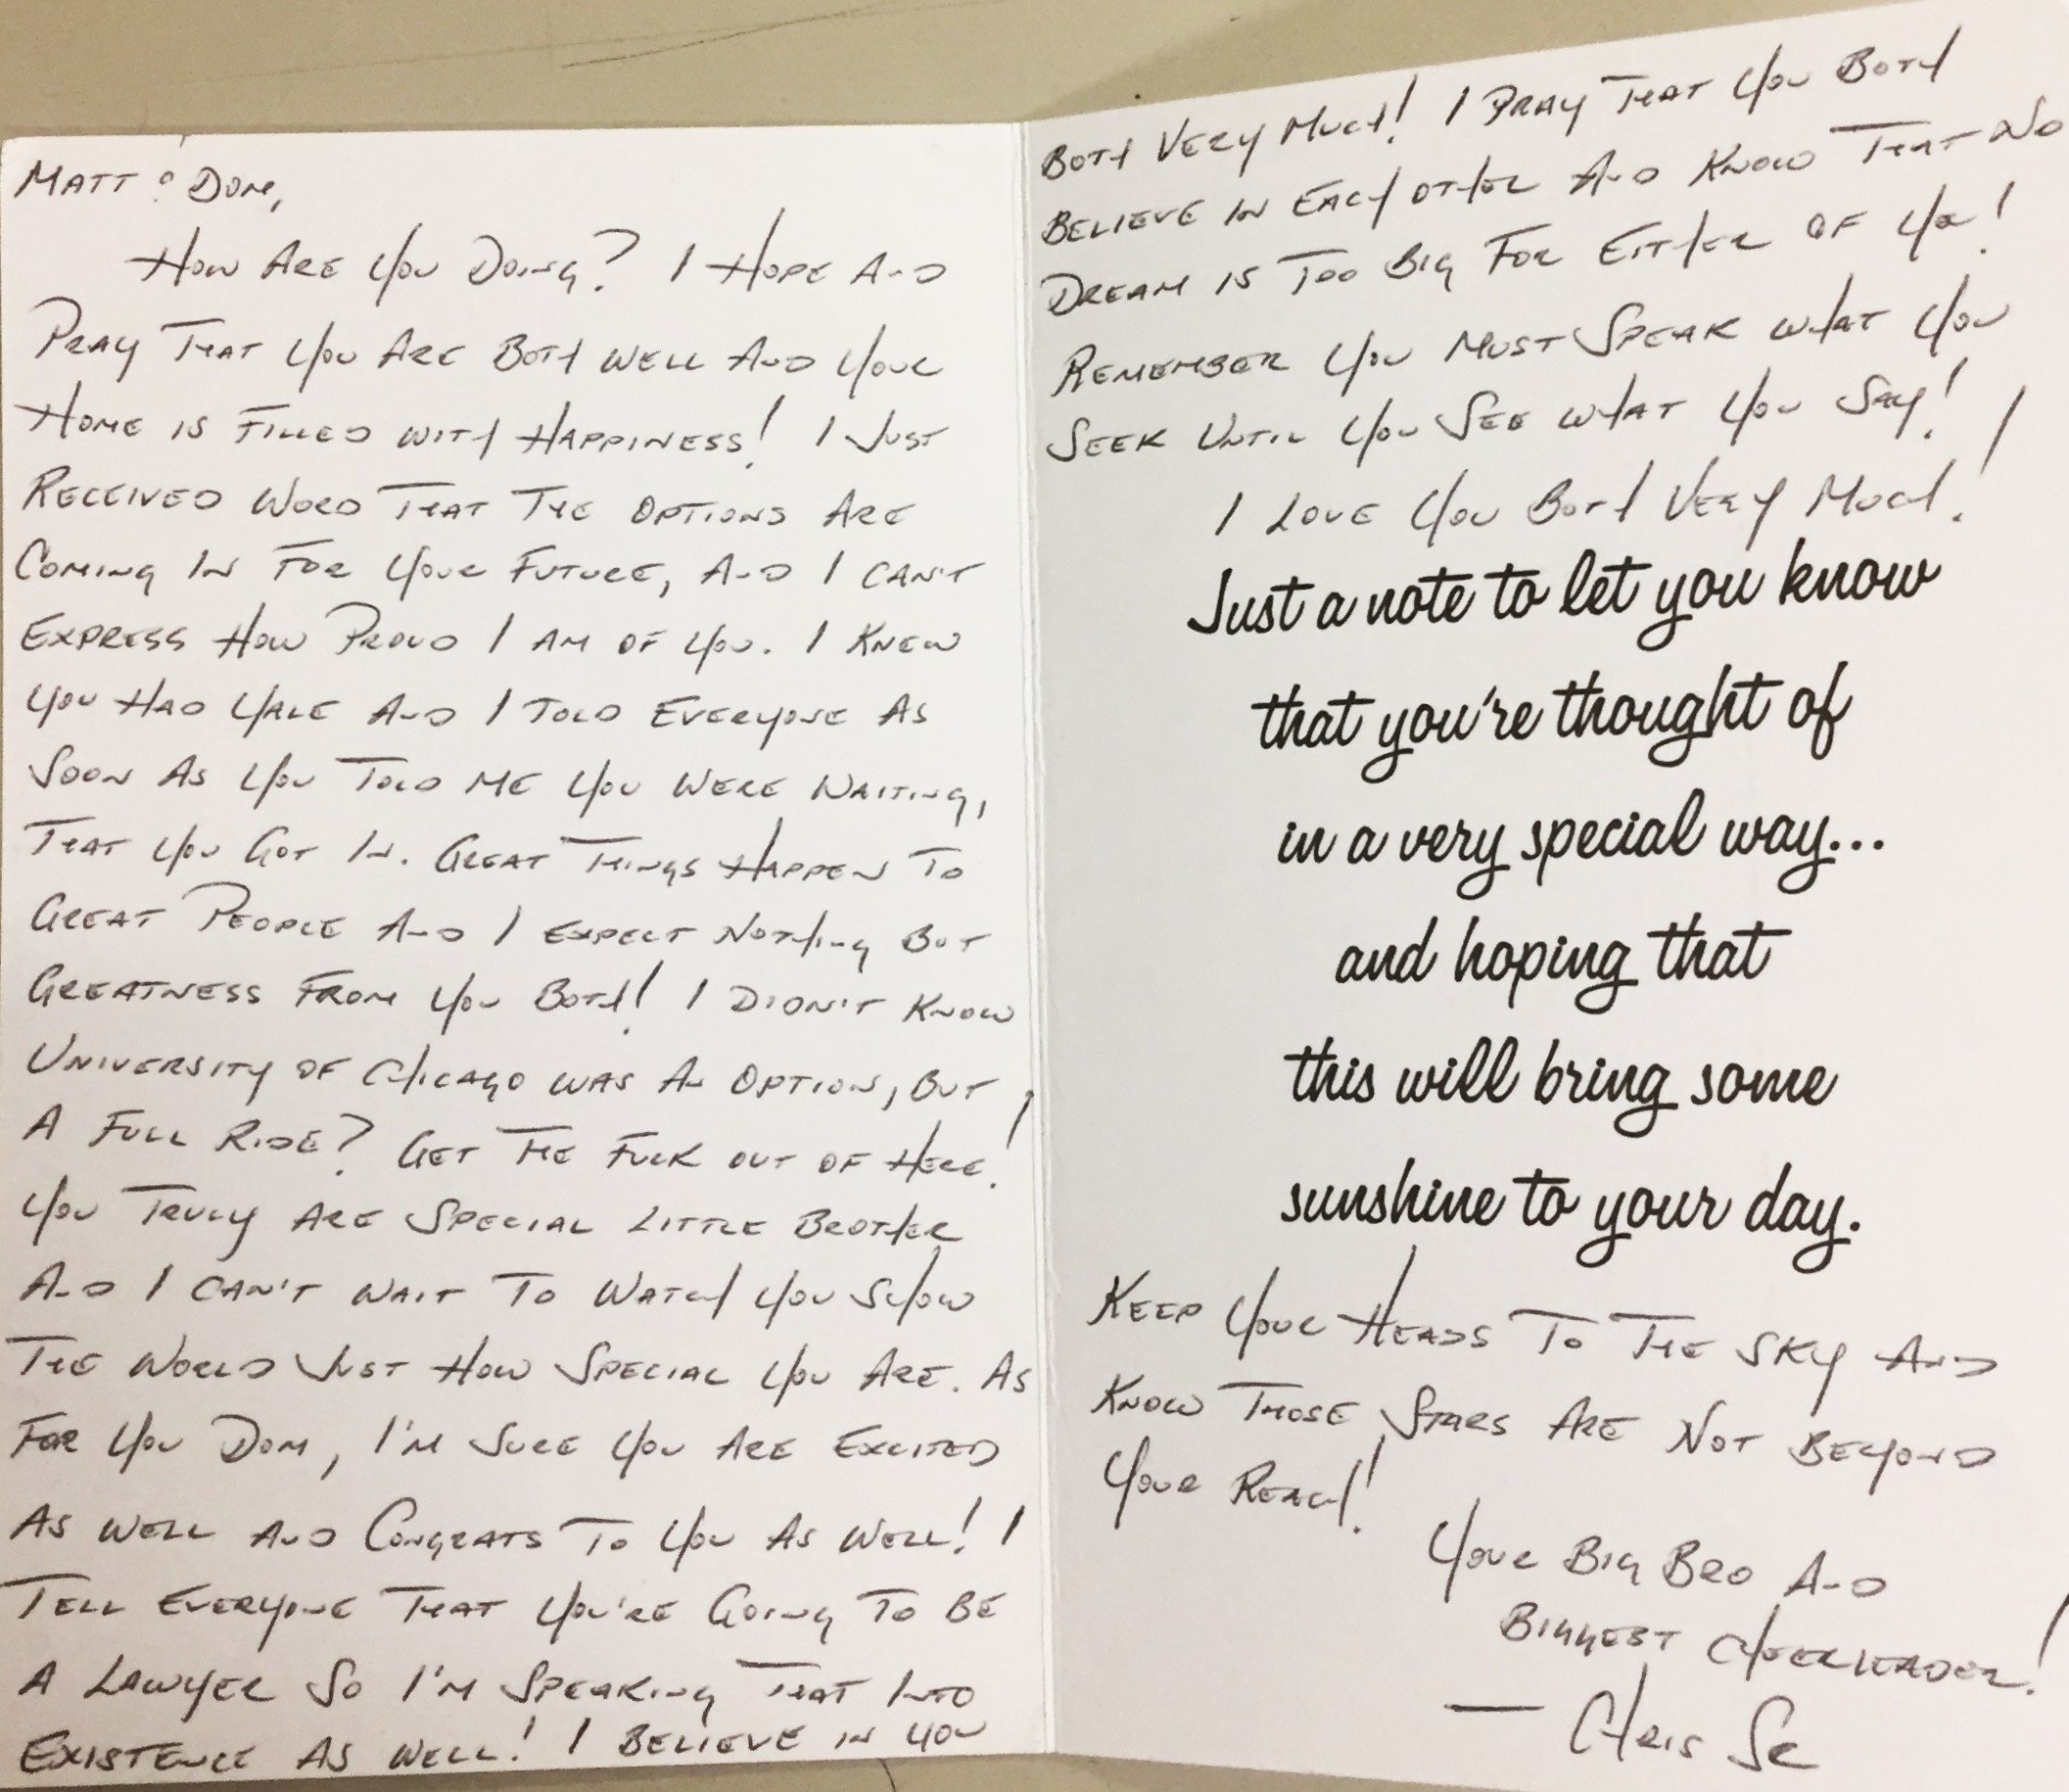 MATT & DOM,
HOW ARE YOU DOING? I HOPE AND
PRAY THAT YOU ARE BOTH WELL AND YOUR
HOME IS FILLED WITH HAPPINESS! I JUST
RECEIVED WORD THAT THE OPTIONS ARE
COMING IN FOR YOUR FUTURE, AND I CAN'T
EXPRESS HOW PROUD I AM OF YOU. I KNEW
YOU HAD YALE AND I TOLD EVERYONE AS
SOON AS YOU TOLD ME YOU WERE WAITING,
THAT YOU GOT IN. GREAT THINGS HAPPEN TO
GREAT PEOPLE AND I EXPECT NOTHING BUT
GREATNESS FROM YOU BOTH! I DIDN'T KNOW
UNIVERSITY OF CHICAGO WAS AN OPTION, BUT
A FULL RIDE? GET THE FUCK OUT OF HERE!
YOU TRULY ARE SPECIAL LITTLE BROTHER
AND I CAN'T WAIT TO WATCH YOU SHOW
THE WORLD JUST HOW SPECIAL YOU ARE. AS
FOR YOU DOM, I'M SURE YOU ARE EXCITED
AS WELL AND CONGRATS TO YOU AS WELL! I
TELL EVERYONE THAT YOU'RE GOING TO BE
A LAWYER SO I'M SPEAKING THAT INTO
EXISTENCE AS WELL! I BELIEVE IN YOU
BOTH VERY MUCH! I PRAY THAT YOU BOTH
BELIEVE IN EACH OTHER AND KNOW THAT NO
DREAM IS TOO BIG FOR EITHER OF YOU!
REMEMBER YOU MUST SPEAK WHAT YOU
SEEK UNTIL YOU SEE WHAT YOU SAY!
I LOVE YOU BOTH VERY MUCH!
Just a note to let you know
that you're thought of
in a very special way...
and hoping that
this will bring some
sunshine to your day.
KEEP YOUR HEADS TO THE SKY AND
KNOW THOSE STARS ARE NOT BEYOND
YOUR REACH!
YOUR BIG BRO AND
BIGGEST CHEERLEADER!
— CHRIS SR